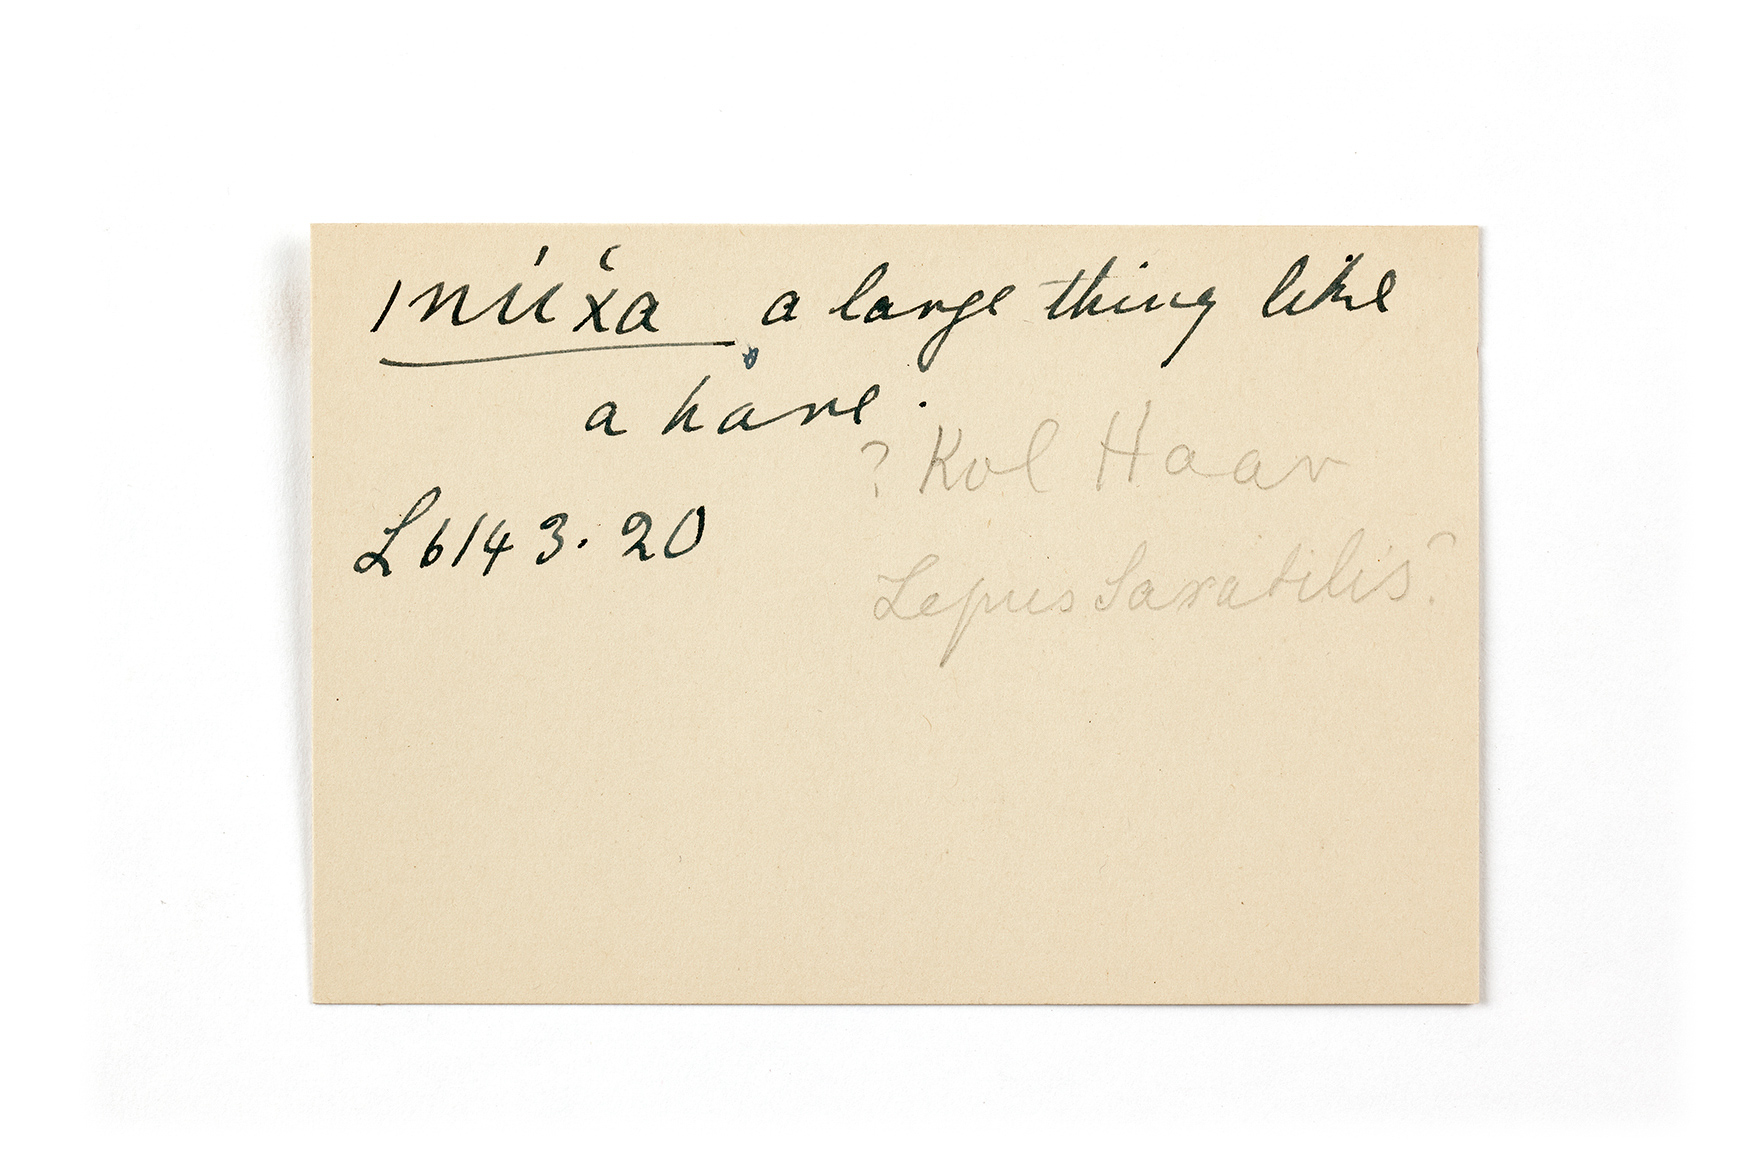 ǀnúĭẋa a large thing like
a hare.
? Kol Haar
L 6143.20
Lepus Saxatilis?